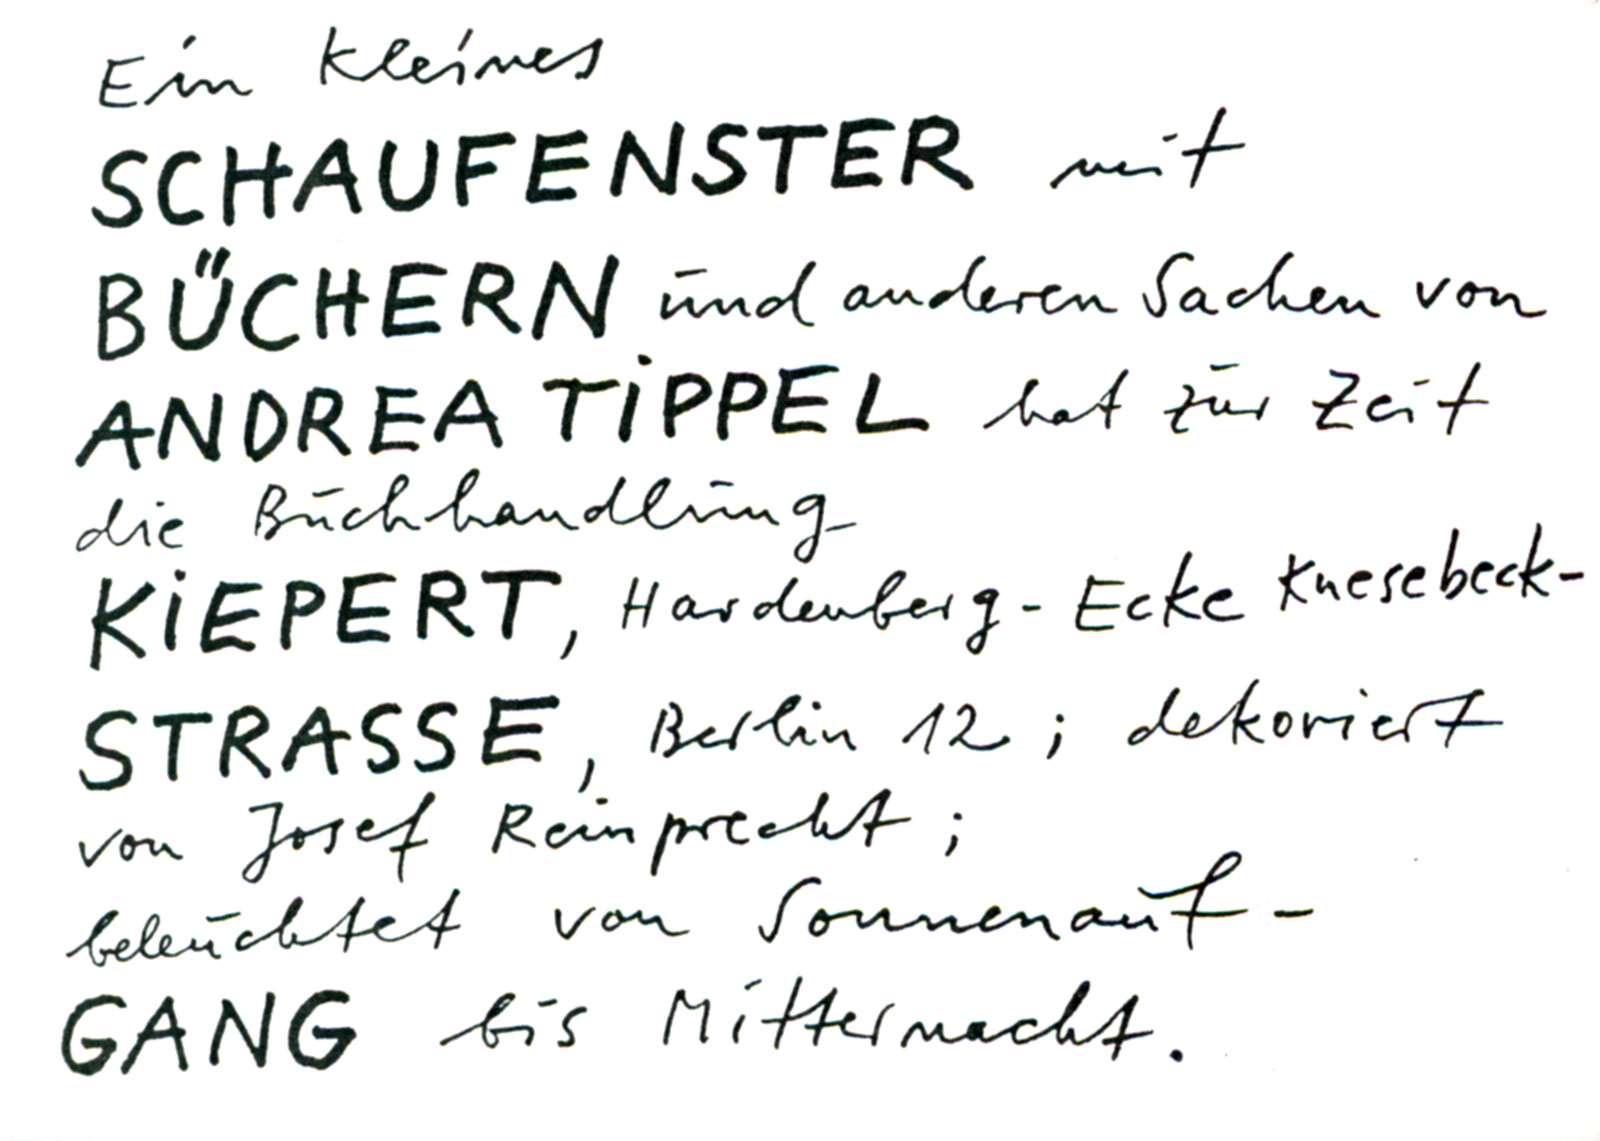 Ein kleines
SCHAUFENSTER mit
BÜCHERN und anderen Sachen von
ANDREA TiPPEL hat zur Zeit
die Buchhandlung
KiEPERT, Hardenberg-Ecke Knesebeck-
STRASSE, Berlin 12; dekoriert
von Josef Reinprecht;
beleuchtet von Sonnenauf-
GANG bis Mitternacht.